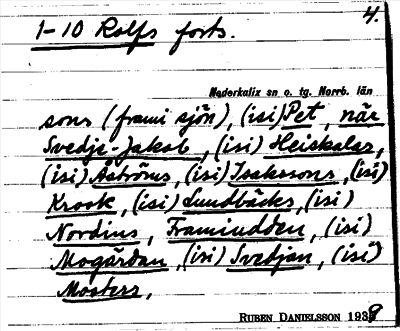 4.
1-10 Rolfs forts.
Nederkalix sn o. tg. Norrb. län
sons (frami sjön), (isi) Pet, när
Svedje-Jakob, (isi) Heiskalas,
(isi) Åströms, (isi) Isakssons, (isi)
Krook, (isi) Lundbäcks, (isi)
Nordins, Framiudden, (isi)
Mogårdan, (isi) Svedjan, (isi)
Mosters,
RUBEN DANIELSSON 1938